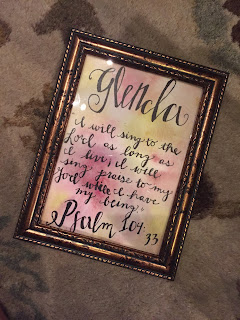 Glencha
I will sing to the
Lord as long as
I live; I will
sing praise to my
God while I have
my being.
Psalm 104:
33